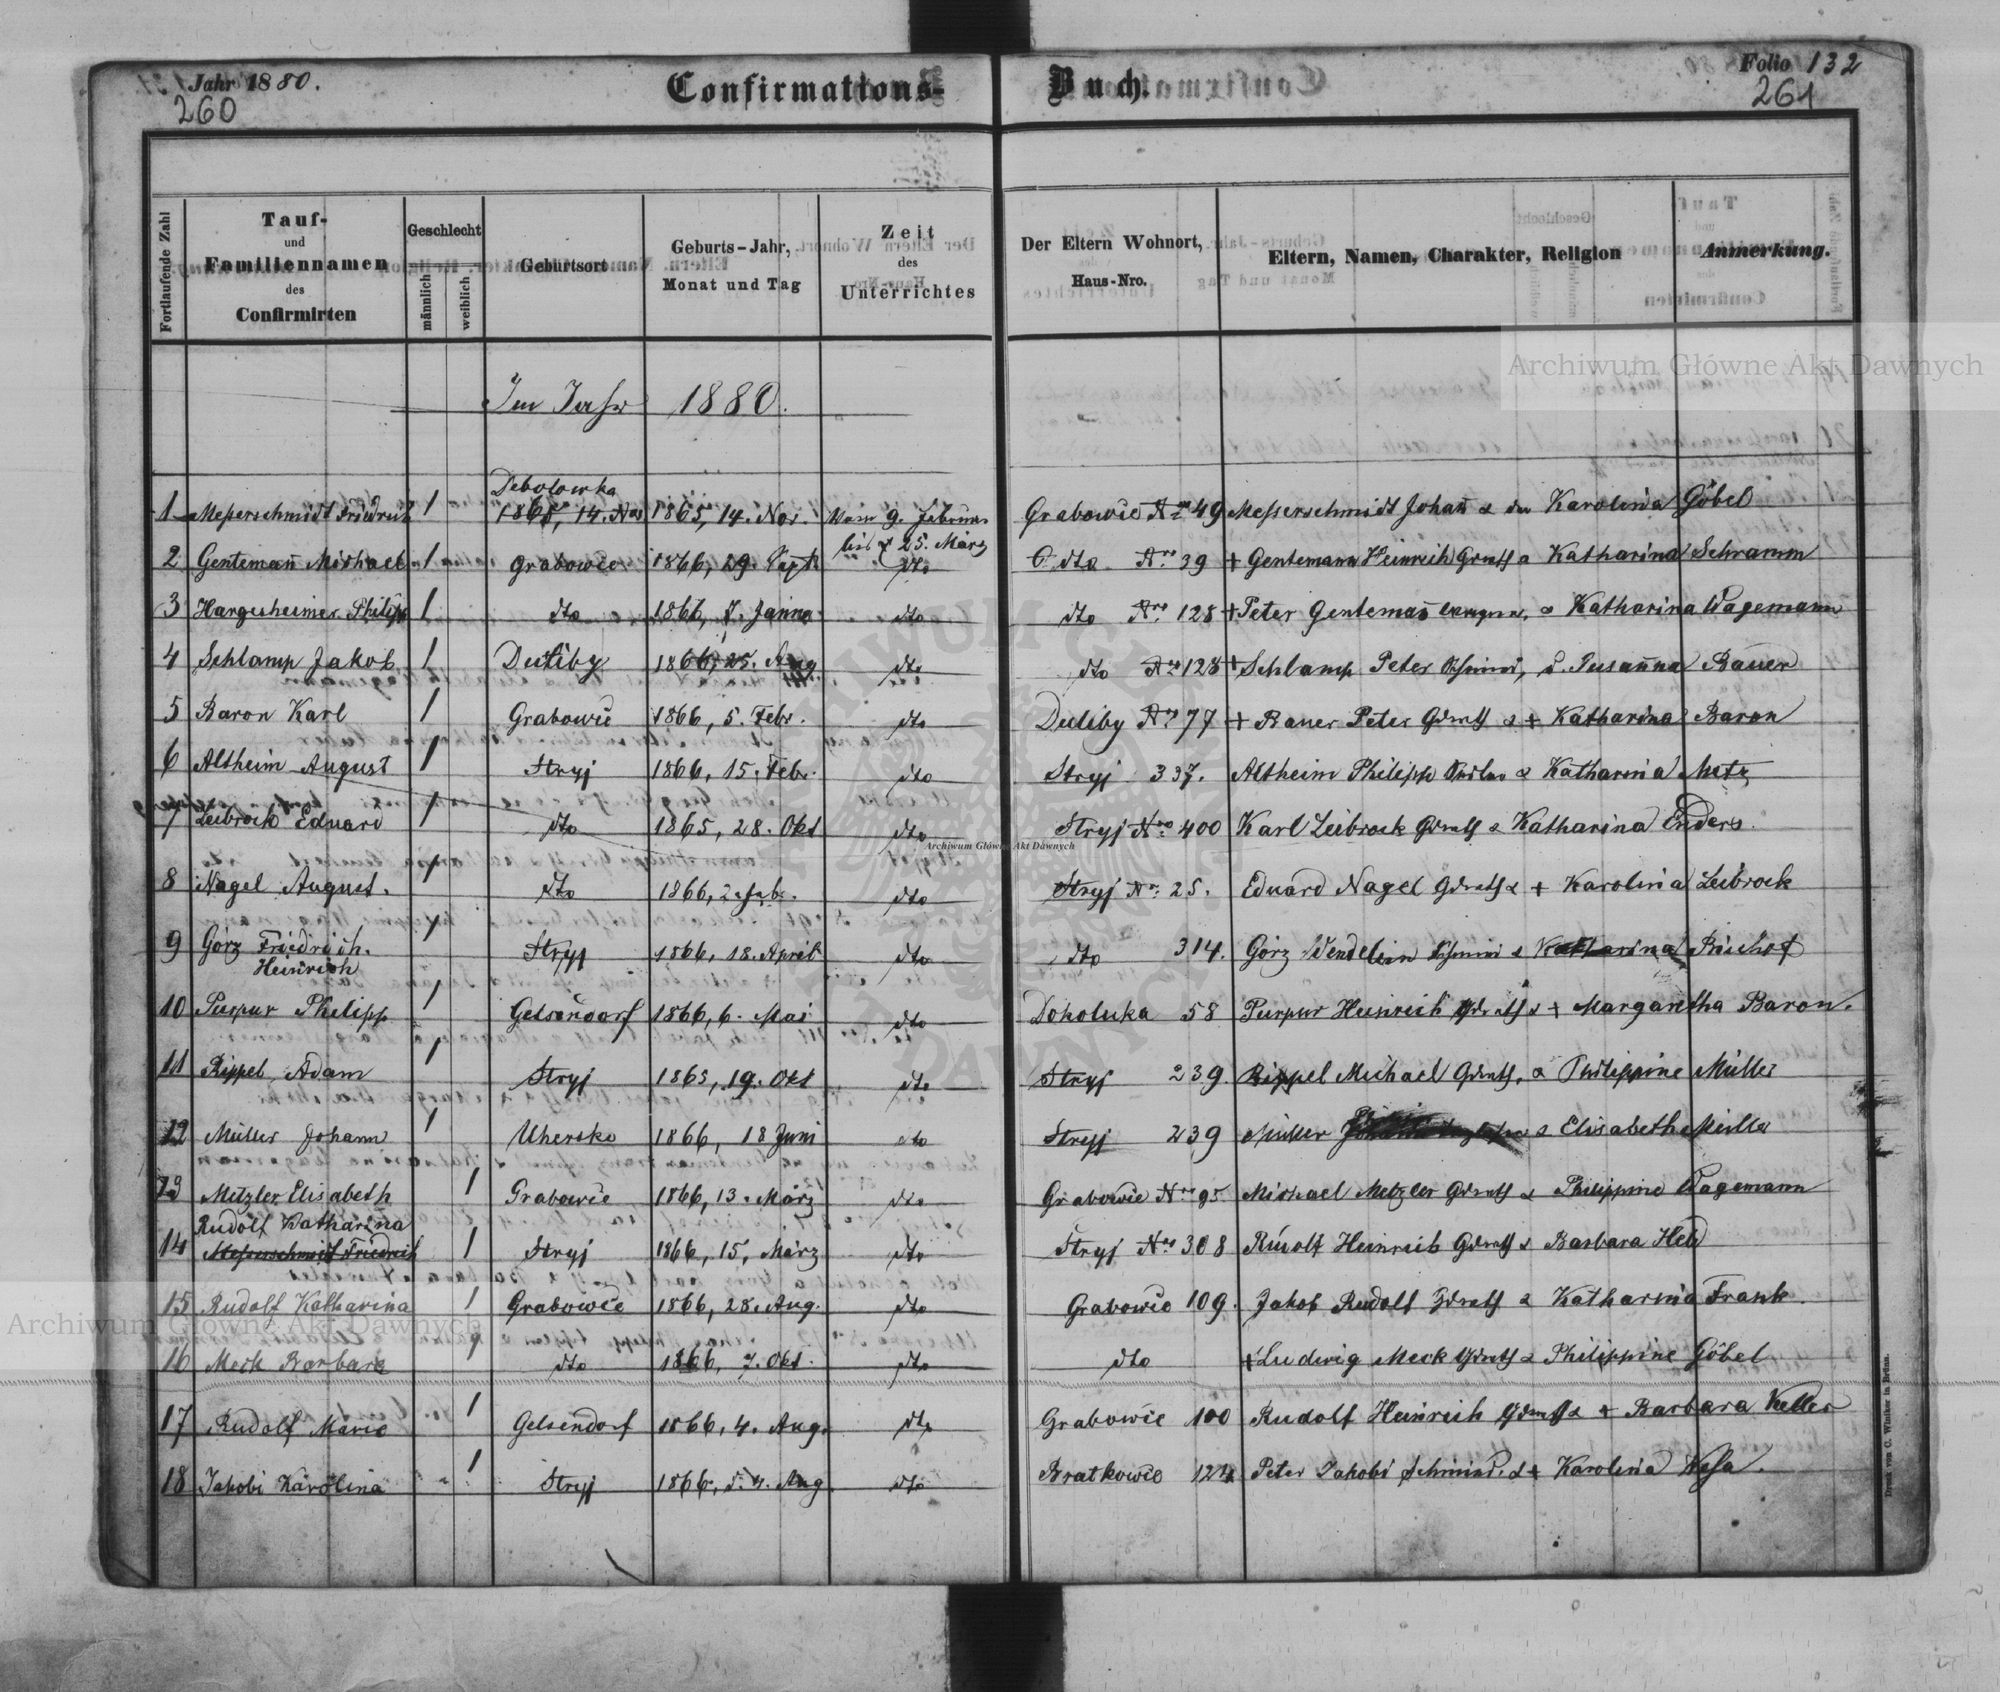 Jahr 1880.
260
Confirmations-
Buch.
Folio 132
261
Fortlaufende Zahl
Tauf-
und
Familiennamen
des
Confirmirten
Geschlecht
männlich
weiblich
Geburtsort
Geburts-Jahr,
Monat und Tag
Zeit
des
Unterrichtes
Der Eltern Wohnort,
Haus-Nro.
Eltern, Namen, Charakter, Religion
Anmerkung.
Im Jahr 1880.
Debolowka
1 Messerschmidt Friedrich 1 1865, 14. Nov 1865, 14. Nov. Vom 9. Februar Grabowie Nro 49 Messerschmidt Johañ & Karolina Göbel
bis 25. März
2 Gentemañ Michael 1 Grabowie 1866, 29. Sept dto dto Nro 39 + Gentemann Heinrich & Katharina Schramm
3 Hargesheimer Philipp 1 dto 1866, 7. Janna dto dto Nro 128 + Peter Gentemañ & Katharina Wagemann
4 Schlamp Jakob 1 Duliby 1866, 25. Aug dto dto Nro 128 + Schlamp Peter Susañna Bauer
5 Baron Karl 1 Grabowie 1866, 5. Febr. dto Duliby Nro 77 + Bauer Peter & + Katharina Baron
6 Altheim August 1 Stryj 1866, 15. Febr. dto Stryj 337. Altheim Philipp & Katharina Metz
7 Leibrock Eduard 1 dto 1865, 28. Okt dto Stryj Nro 400 Karl Leibrock & Katharina Enders.
8 Nagel August. 1 dto 1866, 2. Feb. dto Stryj Nro 25. Eduard Nagel & + Karolina Leibrock
9 Görz Friedrich. 1 Stryj 1866, 18. April dto dto 314. Görz Wendelin & Katharina Bischof
Heinrich
10 Purpur Philipp 1 Gelsendorf 1866, 6. Mai dto Doholuka 58 Purpur Heinrich & + Margaretha Baron.
11 Rippel Adam 1 Stryj 1865, 19. Okt dto Stryj 239. Rippel Michael & Philippine Müller
12 Müller Johann 1 Uhersko 1866, 18 Juni dto Stryj 239 Müller & Elisabeth Müller
13 Metzler Elisabeth 1 Grabowie 1866, 13. März dto Grabowie Nro 95 Michael Metzler & Philippine Wagemann
Rudolf Katharina
14 Messerschmidt Friedrich 1 Stryj 1866, 15. März dto Stryj Nro 308 Rudolf Heinrich & Barbara Heid
15 Rudolf Katharina 1 Grabowie 1866, 28. Aug. dto Grabowie 109. Jakob Rudolf & Katharina Frank.
16 Meck Barbara 1 dto 1866, 7. Okt. dto dto + Ludwig Meck & Philippine Göbel
17 Rudolf Marie 1 Gelsendorf 1866, 4. Aug. dto Grabowie 100 Rudolf Heinrich & + Barbara Keller
18 Jakobi Karolina 1 Stryj 1866, Aug dto Bratkowie 124 Peter Jakobi Schmied. & + Karolina
Druck von C. Winiker in Brünn.
Archiwum Główne Akt Dawnych
Archiwum Główne Akt Dawnych
Archiwum Główne Akt Dawnych